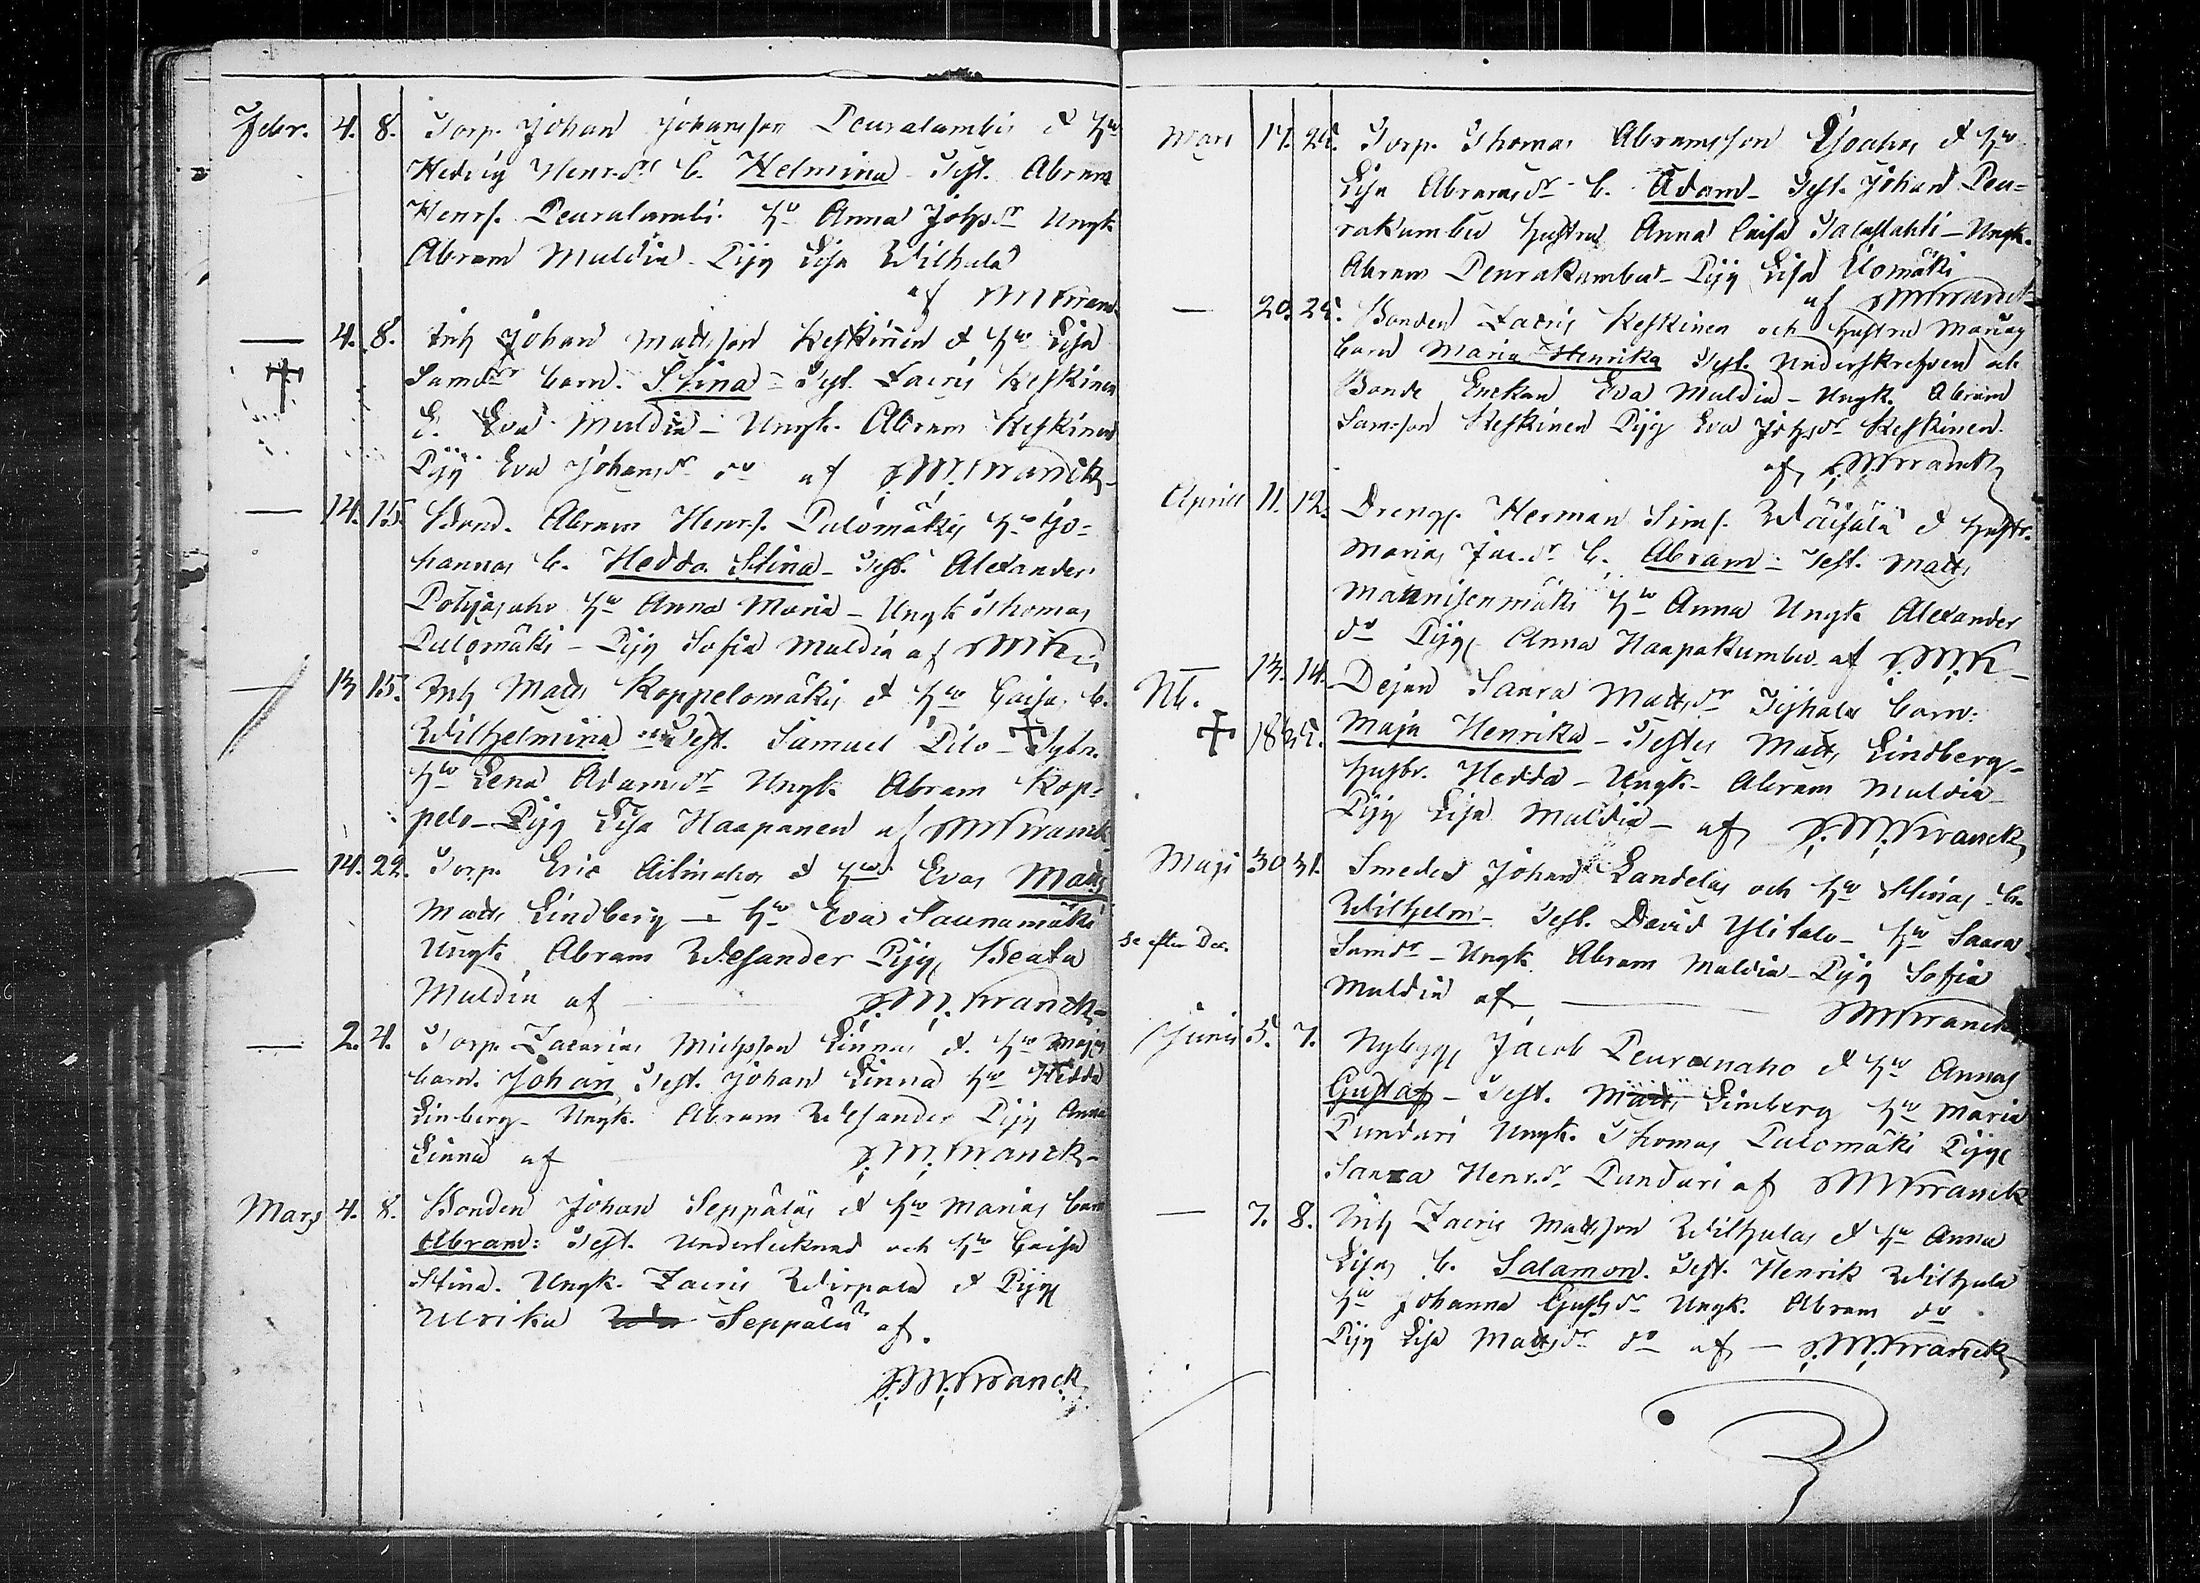 Febr. 4. 8. Torp. Johan Johansson Peuralambis & hu
Hedvig Henrsdr b. Helmina - Test. Abram
Henrs. Peuralambi hu Anna Johsdr Ungk.
Abram Muldia - Pig Lisa Wilhula
af
— 4. 8. Inh Johan Mattsson Keskinen & hu Lisa
Samdr barn. Stina - Test. Zacris Keskinen
E. Eva Muldia - Ungk. Abram Keskinen
Pig Eva Johansdr do af J. M. Kranck
— 14. 15. Bond. Abram Henrs. Pulomäkis hu Jo=
hannas b. Hedda Stina - Test. Alexander
hu Anna Maria - Ungk Thomas
Pulomäki - Pig Sofia Muldia af
— 13 15. Inh Matts Koppelomäkis & hu Caisas b.
Wilhelmina Test. Samuel Pilo -
hu Lena Adamsdr Ungk. Abram Kop=
pelo - Pig Lisa Haapanen af J M Kranck
— 14. 22. Torp. Eric & hus Evas Matts
Matts Lindberg - hu Eva Saunamäki
Ungk Abram Wesander Pig Beata
Muldia af J. M. Kranck
— 2. 4. Torp. Zacarias Michsson Linnas & hu Majas
barn. Johan Test. Johan Linna hu Hedda
Linberg - Ungk. Abram Wesander Pig Anna
Linna af J. M. Kranck
Mars 4. 8. Bonden Johan Seppäläs & hu Marias barn
Abram: Test. Undertecknad och hu Caisa
Stina. Ungk. Zacris Wirpala & Pig
Ulrika Seppälä af.
J. M. Kranck
Mars 17. 25. Torp. Thomas Abramsson & hu
Lisa Abramsdr b. Adam - Test. Johan Peu=
rakumbu hustru Anna Caisa - Ungk.
Abram Peurakumbu - Pig Lisa Ilomäki
af J M Kranck
— 20. 25. Bonden Zacris Keskinen och hustru Marias
barn Maria Henrika Test. Underskrefven och
Bonde Enckan Eva Muldia - Ungk. Abram
Samsson Keskinen Pig Eva Johsdr Keskinen.
af J. M. Kranck
Aprill 11. 12. Drengs. Herman Sims. Wäisälä & hustr.
Marias Jac.dr b. Abram - Test. Matts
Mannisenmäki hu Anna Ungk Alexander
do Pig Anna Haapakumbu af J. M. K
— 13. 14. Dejan Saara Mattsdr barn:
Nb.
18 25. Maja Henrika - Testes Matts Lindberg -
husbr. Hedda - Ungk - Abram Muldia -
Pig Lisa Muldia - af J. M. Kranck
Maji 30 31. Smeden Johan Landelas och hu Stinas b.
Wilhelm - Test. David Ylitalo - hu Saara
se efter Dec.
Samdr - Ungk. Abram Muldia - Pig Sofia
Muldia af J M Kranck
Junii 5. 7. Nybygg. Jacob Peuranaho & hu Annas
Gustaf - Test. Matts Limberg hu Maria
Punduri Ungk. Thomas Pulomäki Pig
Sanna Henr.dr Punduri af J M Kranck
— 7. 8. Inh Zacris Mattsson Wilhulas & hu Anna
Lisas b. Salamon. Test. Henrik Wilhula
hu Johanna Gustsdr Ungk. Abram do
Pig Lisa Mattsdr do af - J. M. Kranck